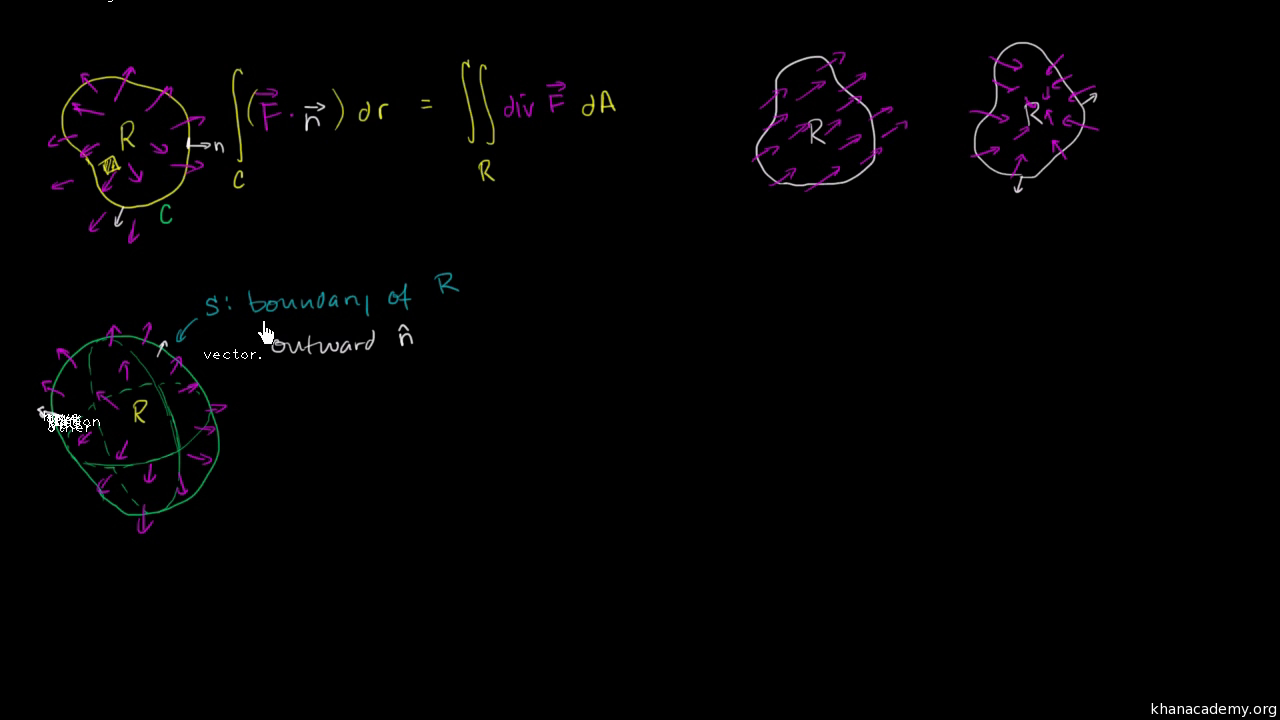 ∫_C (F⃗ · n⃗) dr = ∬_R div F⃗ dA
R
n
C
R
R
S: boundary of R
outward n̂
vector.
R
other
khanacademy.org